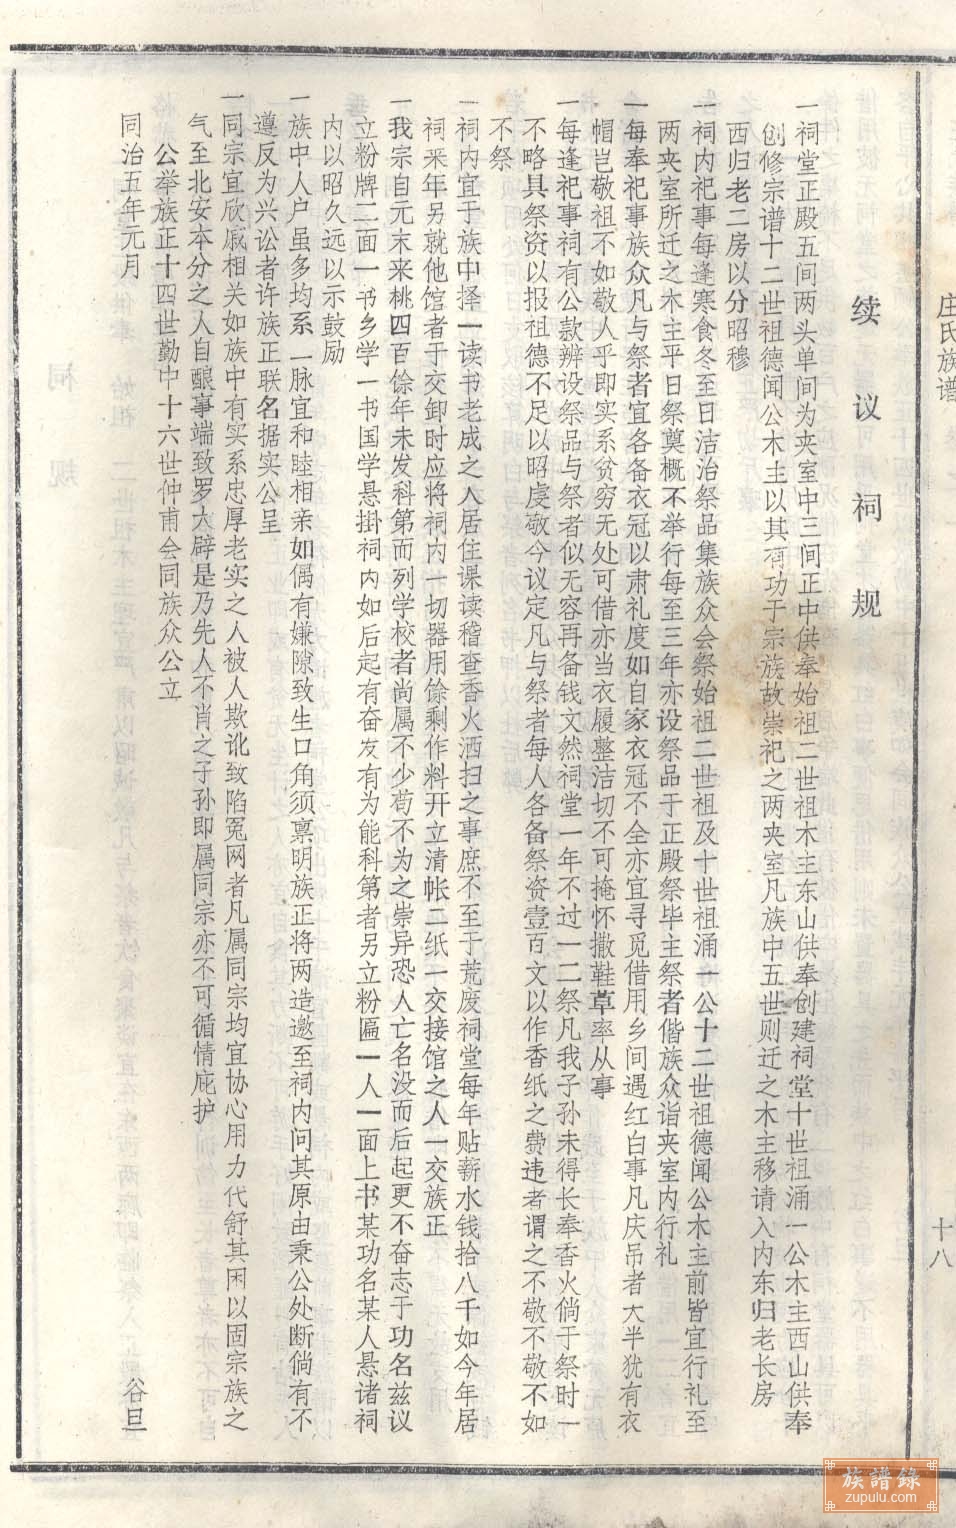 庄氏族谱
十八
续议祠规
一祠堂正殿五间两头单间为夹室中三间正中供奉始祖二世祖木主东山供奉创建祠堂十世祖涌一公木主西山供奉
创修宗谱十二世祖德闻公木主以其有功于宗族故崇祀之两夹室凡族中五世则迁之木主移请入内东归老长房
西归老二房以分昭穆
一祠内祀事每逢寒食冬至日洁治祭品集族众会祭始祖二世祖及十世祖涌一公十二世祖德闻公木主前皆宜行礼至
两夹室所迁之木主平日祭奠概不举行每至三年亦设祭品于正殿祭毕主祭者偕族众诣夹室内行礼
一每奉祀事族众凡与祭者宜各备衣冠以肃礼度如自家衣冠不全亦宜寻觅借用乡间遇红白事凡庆吊者大半犹有衣
帽岂敬祖不如敬人乎即实系贫穷无处可借亦当衣履整洁切不可掩怀撒鞋草率从事
一每逢祀事祠有公款辨设祭品与祭者似无容再备钱文然祠堂一年不过一二祭凡我子孙未得长奉香火倘于祭时一
不略具祭资以报祖德不足以昭虔敬今议定凡与祭者每人各备祭资壹百文以作香纸之费违者谓之不敬不敬不如
不祭
一祠内宜于族中择一读书老成之人居住课读稽查香火洒扫之事庶不至于荒废祠堂每年贴薪水钱拾八千如今年居
祠来年另就他馆者于交卸时应将祠内一切器用馀剩作料开立清帐二纸一交接馆之人一交族正
一我宗自元末来桃四百馀年未发科第而列学校者尚属不少苟不为之崇异恐人亡名没而后起更不奋志于功名兹议
立粉牌二面一书乡学一书国学悬掛祠内如后起有奋发有为能科第者另立粉匾一人一面上书某功名某人悬诸祠
内以昭久远以示鼓励
一族中人户虽多均系一脉宜和睦相亲如偶有嫌隙致生口角须禀明族正将两造邀至祠内问其原由秉公处断倘有不
遵反为兴讼者许族正联名据实公呈
一同宗宜欣戚相关如族中有实系忠厚老实之人被人欺讹致陷冤网者凡属同宗均宜协心用力代舒其困以固宗族之
气至北安本分之人自酿事端致罗大辟是乃先人不肖之子孙即属同宗亦不可循情庇护
公举族正十四世勤中十六世仲甫会同族众公立
同治五年元月 谷旦
族譜錄
zupulu.com